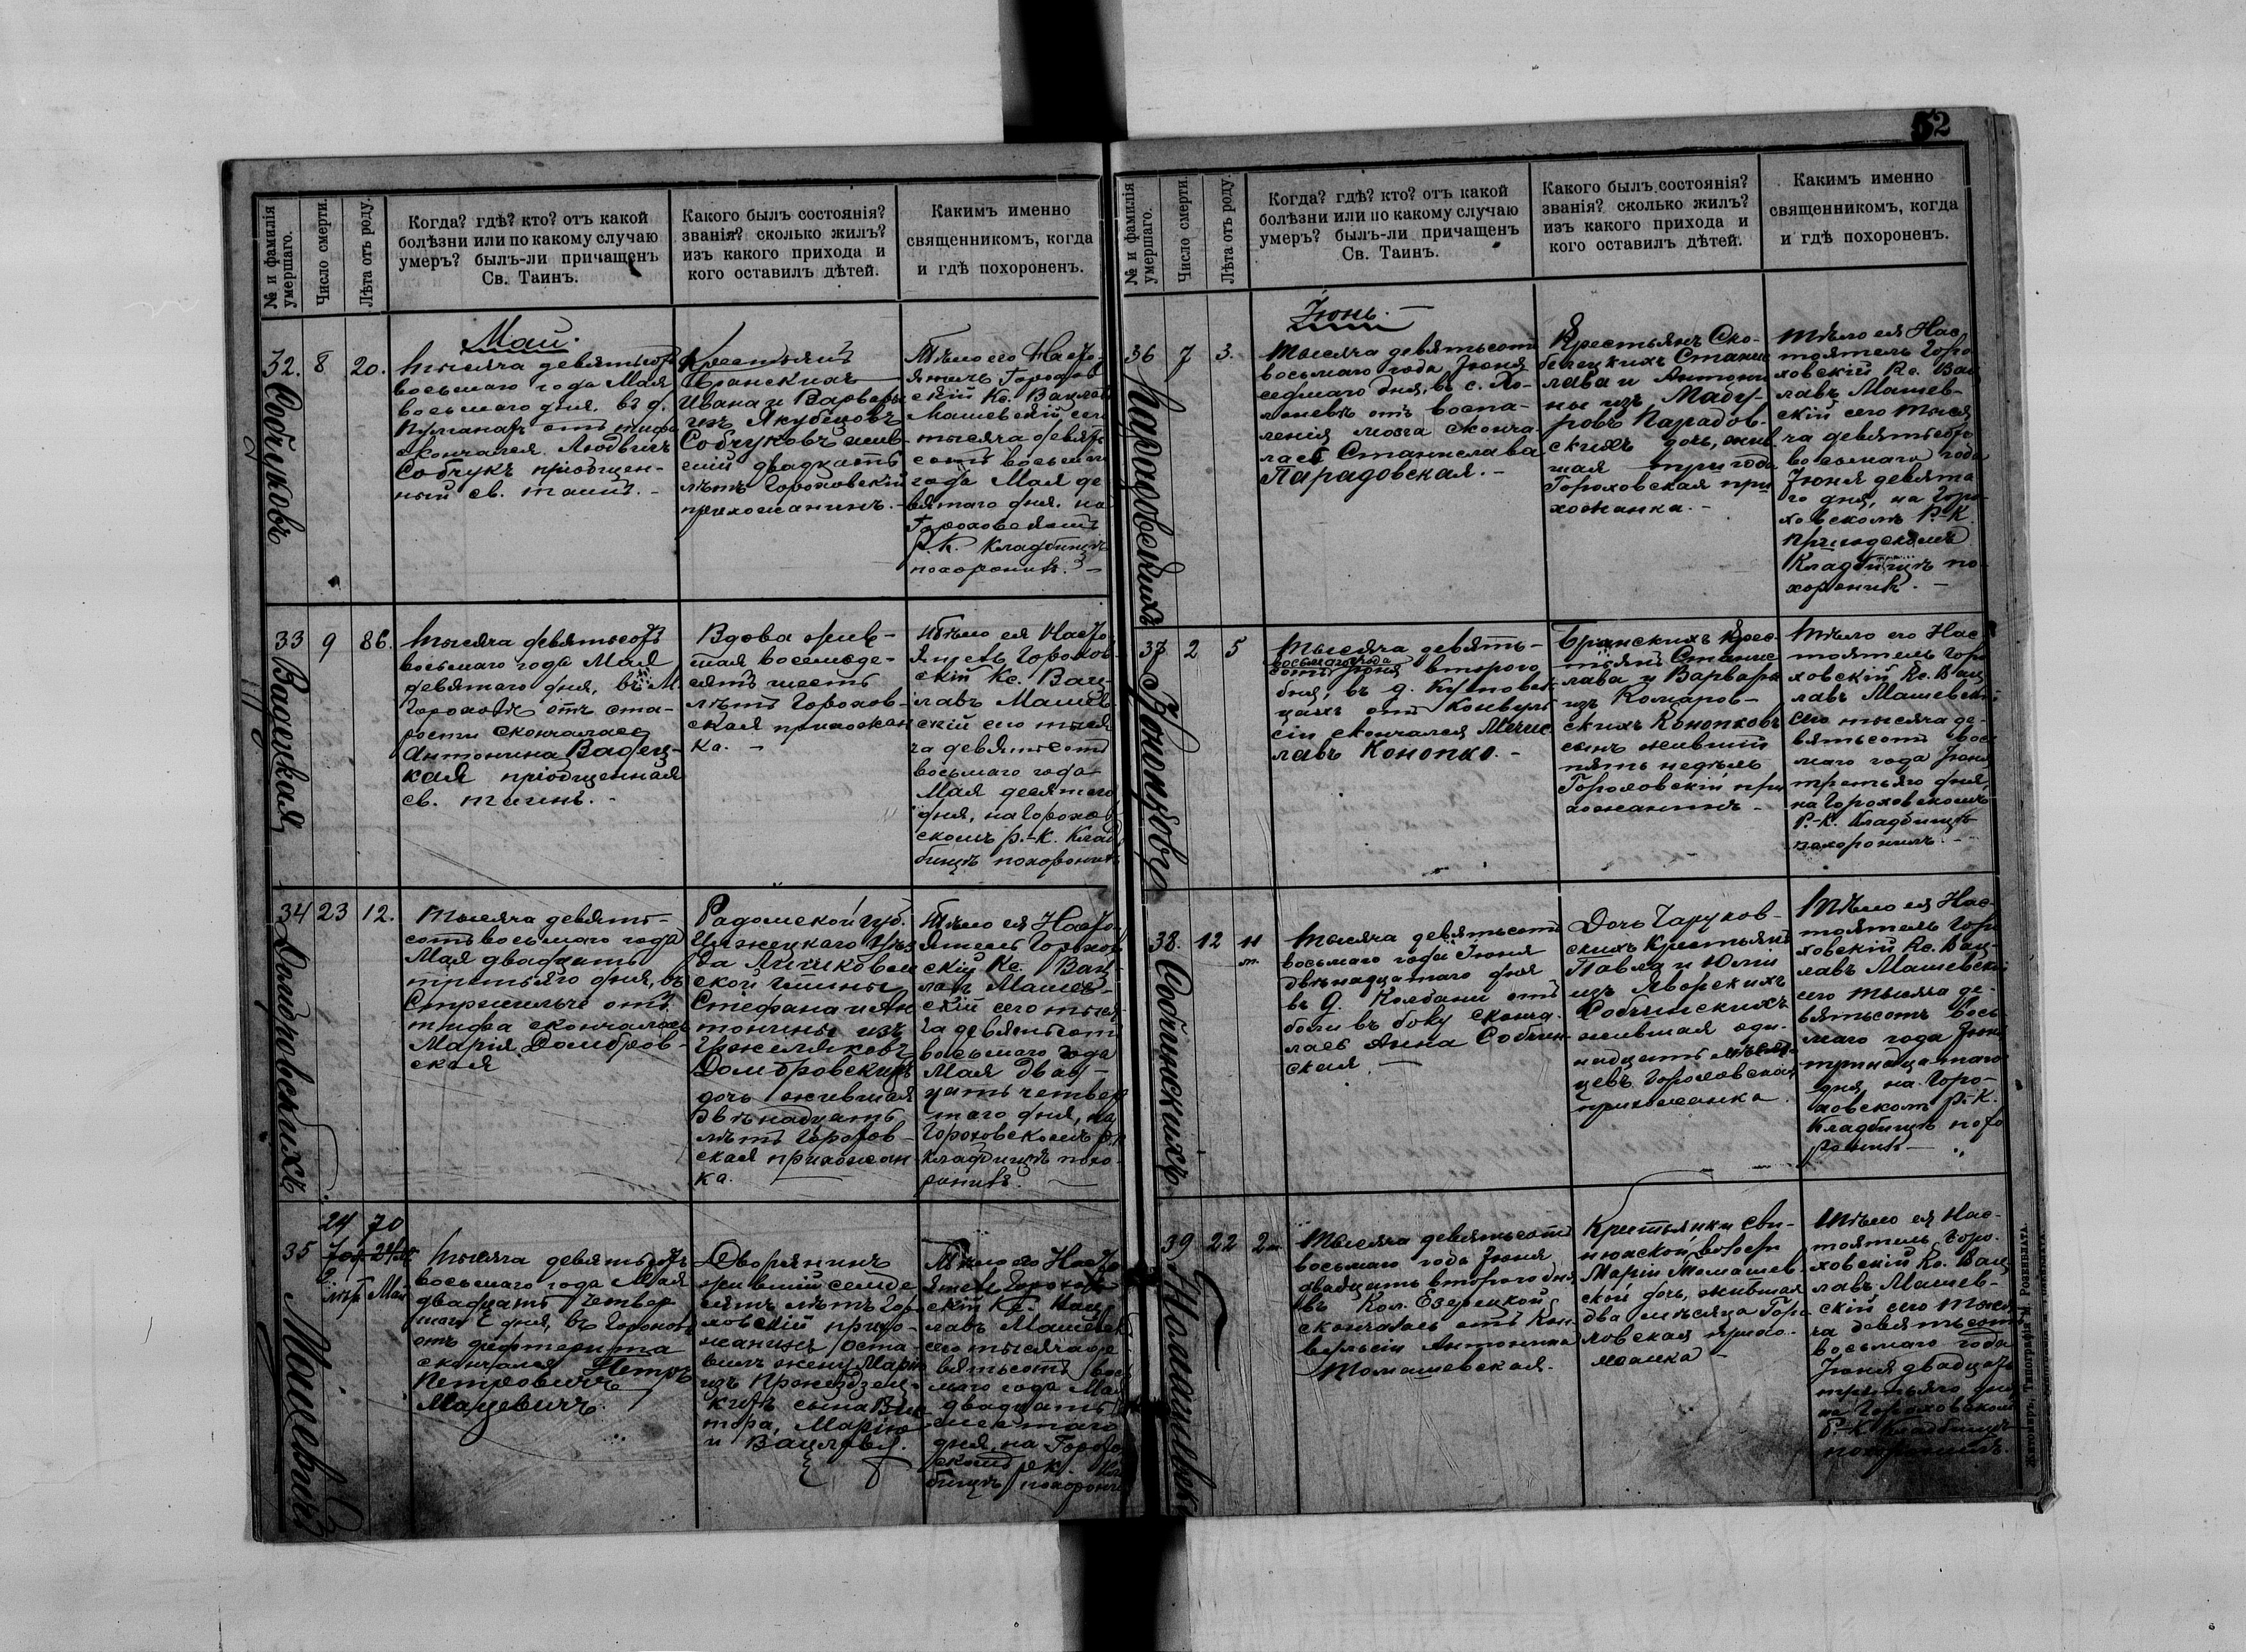 № и фамилія
умершаго.
Число смерти.
Лѣта отъ роду.
Когда? гдѣ? кто? отъ какой
болѣзни или по какому случаю
умеръ? былъ-ли причащенъ
Св. Таинъ.
Какого былъ состоянія?
званія? сколько жилъ?
изъ какого прихода и
кого оставилъ дѣтей.
Каким именно
священникомъ, когда
и гдѣ похороненъ.
Май.
32. Собчуковъ
8
20.
Тысяча девятьсотъ
восьмаго года Мая
восьмаго дня, въ д.
отъ тифа
скончался Людвигъ
Собчукъ пріобщен-
ный св. таинъ. -
Крестьянъ
Ивана и Варвары
изъ Якубцовъ
Собчуковъ жив-
шій двадцать
лѣтъ Гороховскій
прихожанинъ. -
Тѣло его Насто-
ятель Горохов
скій Кс. Вацлавъ
Машевскій сего
тысяча девять
сотъ восьмаго
года Мая де
вятаго дня, на
Гороховскомъ
р. к. кладбищѣ
похоронилъ. -
33 Вадецкая
9
86.
Тысяча девятьсотъ
восьмаго года Мая
девятаго дня, въ М.
Гороховѣ отъ ста-
рости скончалась
Антонина Вадец-
кая пріобщенная
св. таинъ. -
Вдова жив-
шая восемьде-
сятъ шесть
лѣтъ Горохов-
ская прихожан
ка. -
Тѣло ея Насто-
ятель Горохов-
скій Кс. Вац-
лавъ Машев-
скій сего тыся
ча девятьсотъ
восьмаго года
Мая десятаго
дня, на Горохов-
скомъ р.-к. Клад
бищѣ похоронилъ
34 Домбровскихъ
23
12.
Тысяча девять-
сотъ восьмаго года
Мая двадцать
третьяго дня, въ
отъ
тифа скончалась
Марія Домбров-
ская
Радомской губ.
Илжецкаго Уѣз
да
ской гмины
Стефана и Ан
тонины изъ
Гржеляковъ
Домбровскихъ
дочь жившая
двѣнадцать
лѣтъ Горохов-
ская прихожан
ка.
Тѣло ея Насто-
ятель Горохов
скій Кс. Вац-
лавъ Машев-
скій сего тыся
ча девятьсотъ
восьмаго года
Мая двад-
цать четвер
таго дня, на
Гороховскомъ р.к.
кладбищѣ похо-
ронилъ. -
35 Мацевичъ
24
70
Мая
Тысяча девятьсотъ
восьмаго года Мая
двадцать четвер
таго дня, въ Гороховѣ
отъ дифтерита
скончался Петръ
Петровичъ
Мацевичъ.
Дворянинъ
жившій семьде
сятъ лѣтъ Горо-
ховскій прихо-
жанинъ, оста-
вилъ жену Марію
изъ
сына Вик
тора, Марію
и Вацлава.
Тѣло его Насто
ятель Горохов
скій Кс. Вац-
лавъ Машевск
сего тысяча де-
вятьсотъ вось
маго года Мая
двадцать
шестаго
дня, на Горохов
скомъ р. к. Клад
бищѣ похоронилъ
52
№ и фамилія
умершаго.
Число смерти.
Лѣта отъ роду.
Когда? гдѣ? кто? отъ какой
болѣзни или по какому случаю
умеръ? былъ-ли причащенъ
Св. Таинъ.
Какого былъ состоянія?
званія? сколько жилъ?
изъ какого прихода и
кого оставилъ дѣтей.
Какимъ именно
священникомъ, когда
и гдѣ похороненъ.
Іюнь. -
36 Парадовскихъ
7
3.
Тысяча девятьсотъ
восьмаго года Іюня
седьмаго дня, въ с. Хо-
лоневѣ отъ воспа-
ленія мозга сконча-
лась Станислава
Парадовская. -
Крестьянъ Ско-
белецкихъ Станис
лава и Антони
ны изъ Мазу-
ровъ Парадов-
скихъ дочь, жив
шая три года
Гороховская при
хожанка. -
Тѣло ея Нас-
тоятель Горо
ховскій Кс. Вац
лавъ Машев-
скій сего тыся
ча девятьсотъ
восьмаго года
Іюня девята
го дня, на Горо-
ховскомъ Р.-К.
приходскомъ
Кладбищѣ по-
хоронилъ. -
37
2
5
Тысяча девять-
сотъ восьмаго года Іюня второго
дня, въ д.
отъ Конвуль-
сіи скончался Мечис
лавъ Конопко. -
Бранскихъ Крес
тьянъ Станис
лава и Варвары
изъ Комаров-
скихъ Конопковъ
сынъ жившій
пять недѣль
Гороховскій при
хожанинъ. -
Тѣло его Нас-
тоятель Горо
ховскій Кс. Вац
лавъ Машевскій
сего тысяча де-
вятьсотъ вось
маго года Іюня
третьяго дня,
на Гороховскомъ
Р.-К. Кладбищѣ
похоронилъ. -
38. Собчинскихъ
12
11
м.
Тысяча девятьсотъ
восьмаго года Іюня
двѣнадцатаго дня
въ д. Колбани отъ
боли въ боку сконча-
лась Анна Собчин-
ская. -
Дочь Чаруков-
скихъ крестьянъ
Павла и Юліи
изъ Яворскихъ
Собчинскихъ
жившая оди-
надцать мѣся-
цевъ Гороховская
прихожанка.
Тѣло ея Нас-
тоятель Горо
ховскій Кс. Вац-
лавъ Машевскій
сего тысяча де-
вятьсотъ вось
маго года Іюня
тринадцатаго
дня, на Горо-
ховскомъ р.-К.
Кладбищѣ похо
ронилъ -
39
22
2 м.
Тысяча девятьсотъ
восьмаго года Іюня
двадцать второго дня
въ Кол. Езерецкой
скончалась отъ Кон-
вульсіи Антонина
Томашевская.
Крестьянки Сви-
нюхской волости
Маріи Томашев-
ской дочь, жившая
два мѣсяца Горо
ховская прихо-
жанка -
Тѣло ея Нас-
тоятель Горо-
ховскій Кс. Вац
лавъ Машев-
скій сего тыся
ча девятьсотъ
восьмаго года
Іюня двадцать
третьяго дня
на Гороховскомъ
Р.-К. Кладбищѣ
похоронилъ.
Житомиръ, Типографія М. Розенблата.